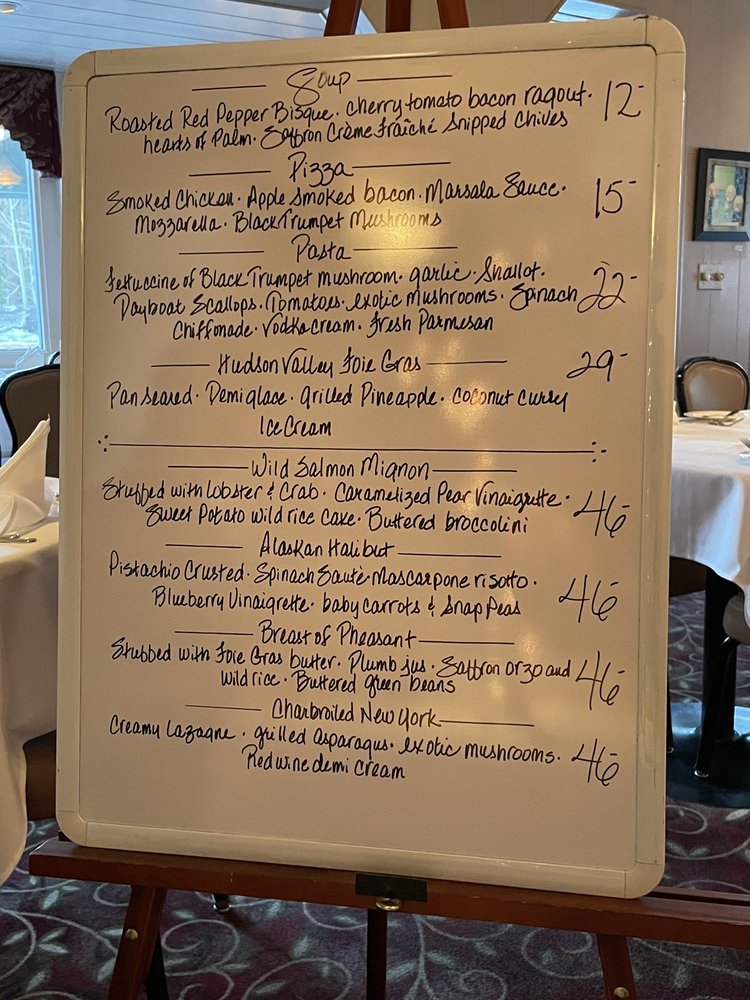 Soup
Roasted Red Pepper Bisque · Cherry tomato bacon ragout · 12-
hearts of Palm · Saffron Crème Fraîché Snipped Chives
Pizza
Smoked Chicken · Apple Smoked bacon · Marsala Sauce · 15-
Mozzarella · Black Trumpet Mushrooms
Pasta
Fettuccine of Black Trumpet mushroom · garlic · Shallot ·
Dayboat Scallops · Tomatoes · exotic mushrooms · Spinach 22-
Chiffonade · Vodka cream · Fresh Parmesan
Hudson Valley Foie Gras 29-
Pan Seared · Demi glace · grilled Pineapple · coconut curry
Ice Cream
Wild Salmon Mignon
Stuffed with Lobster & Crab · Caramelized Pear Vinaigrette · 46-
Sweet Potato wild rice Cake · Buttered broccolini
Alaskan Halibut
Pistachio Crusted · Spinach Sauté Mascarpone risotto · 46-
Blueberry Vinaigrette · baby carrots & Snap Peas
Breast of Pheasant
Stubbed with Foie Gras butter · Plumb jus · Saffron orzo and 46-
wild rice · Buttered green beans
Charbroiled New York
Creamy Lazagne · grilled asparagus · exotic mushrooms · 46-
Red wine demi cream